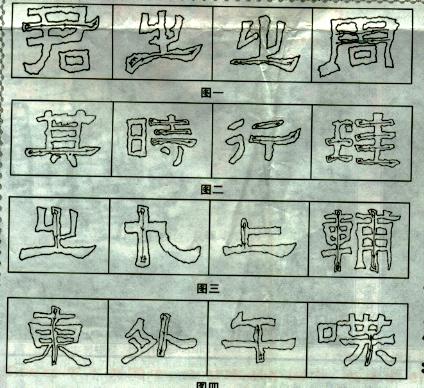 君 㞢 㞢 周
图一
其 時 行 珪
图二
㞢 九 上 輔
图三
東 外 午 喋
图四